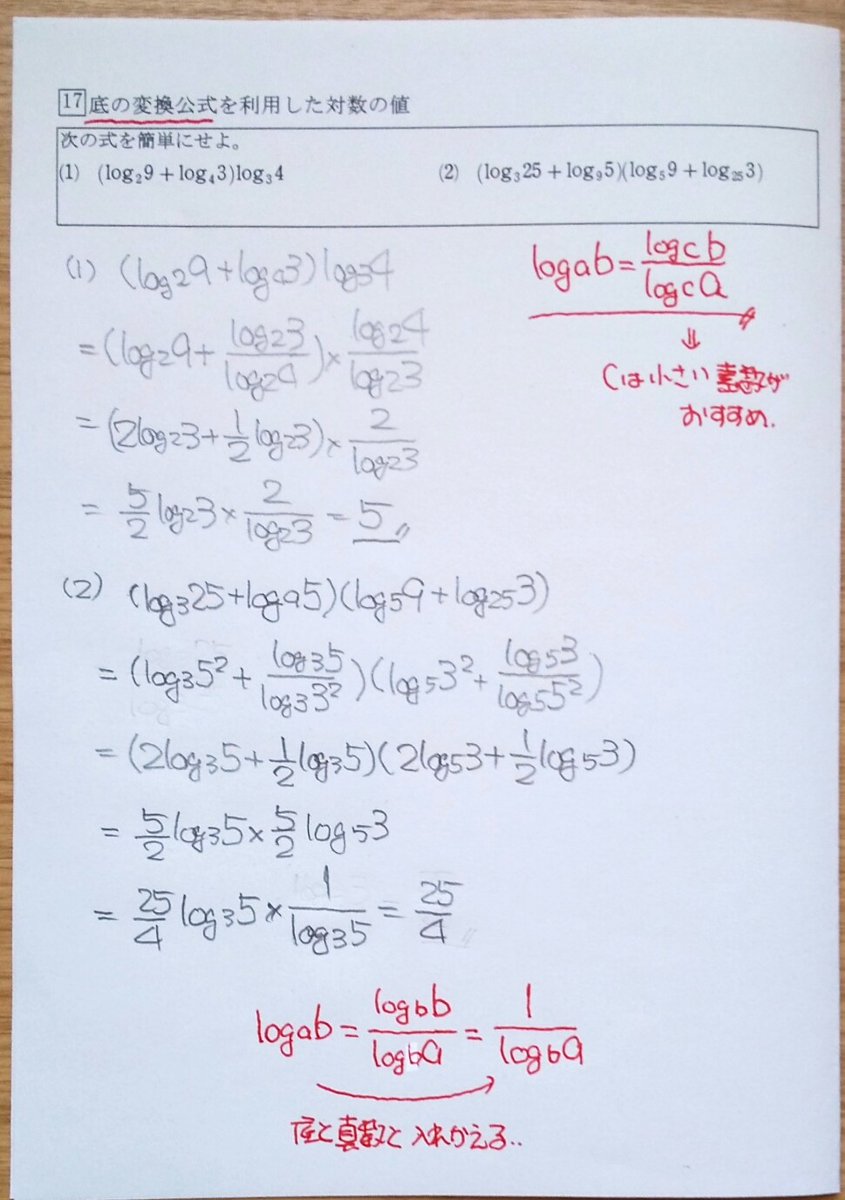 17 底の変換公式を利用した対数の値
次の式を簡単にせよ。
(1) (log₂9 + log₄3)log₃4
(2) (log₃25 + log₉5)(log₅9 + log₂₅3)
(1) (log₂9 + log₄3) log₃4
= (log₂9 + log₂3/log₂4) × log₂4/log₂3
= (2log₂3 + 1/2 log₂3) × 2/log₂3
= 5/2 log₂3 × 2/log₂3 = 5〃
logab = logcb/logca
⇓
Cは小さい素数が
おすすめ.
(2) (log₃25 + log₉5)(log₅9 + log₂₅3)
= (log₃5² + log₃5/log₃3²)(log₅3² + log₅3/log₅5²)
= (2log₃5 + 1/2 log₃5)(2log₅3 + 1/2 log₅3)
= 5/2 log₃5 × 5/2 log₅3
= 25/4 log₃5 × 1/log₃5 = 25/4〃
logab = logbb/logba = 1/logba
底と真数と入れかえる..